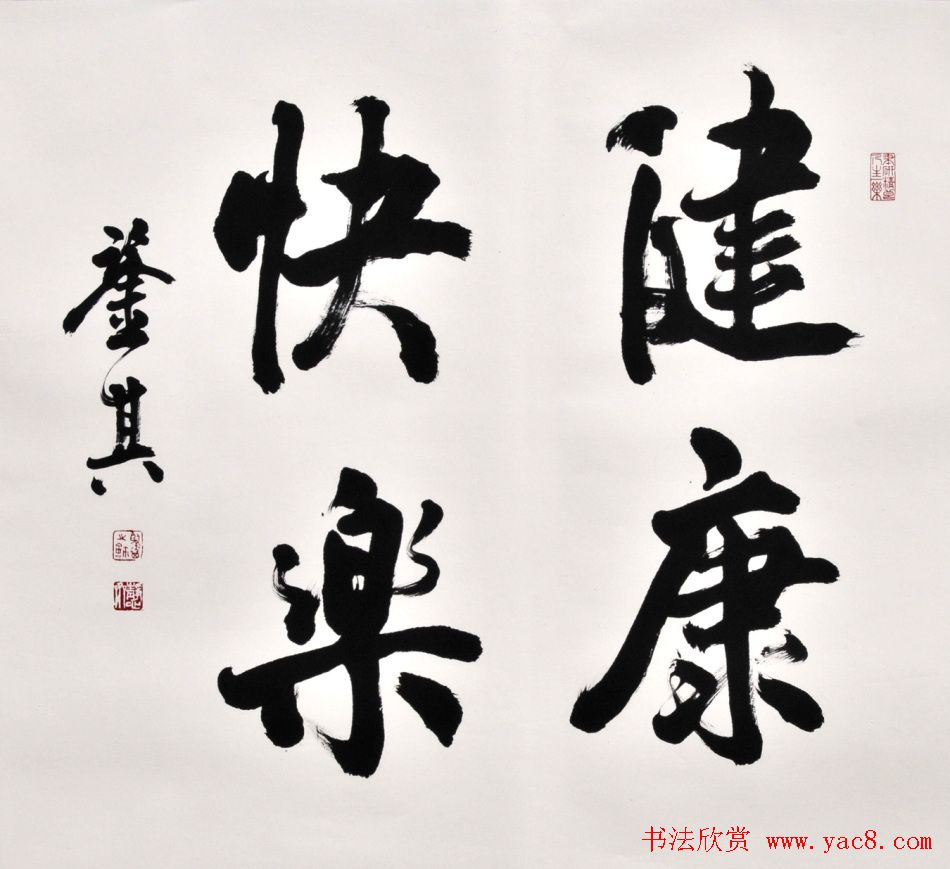 健康
快樂
其
书法欣赏 www.yac8.com